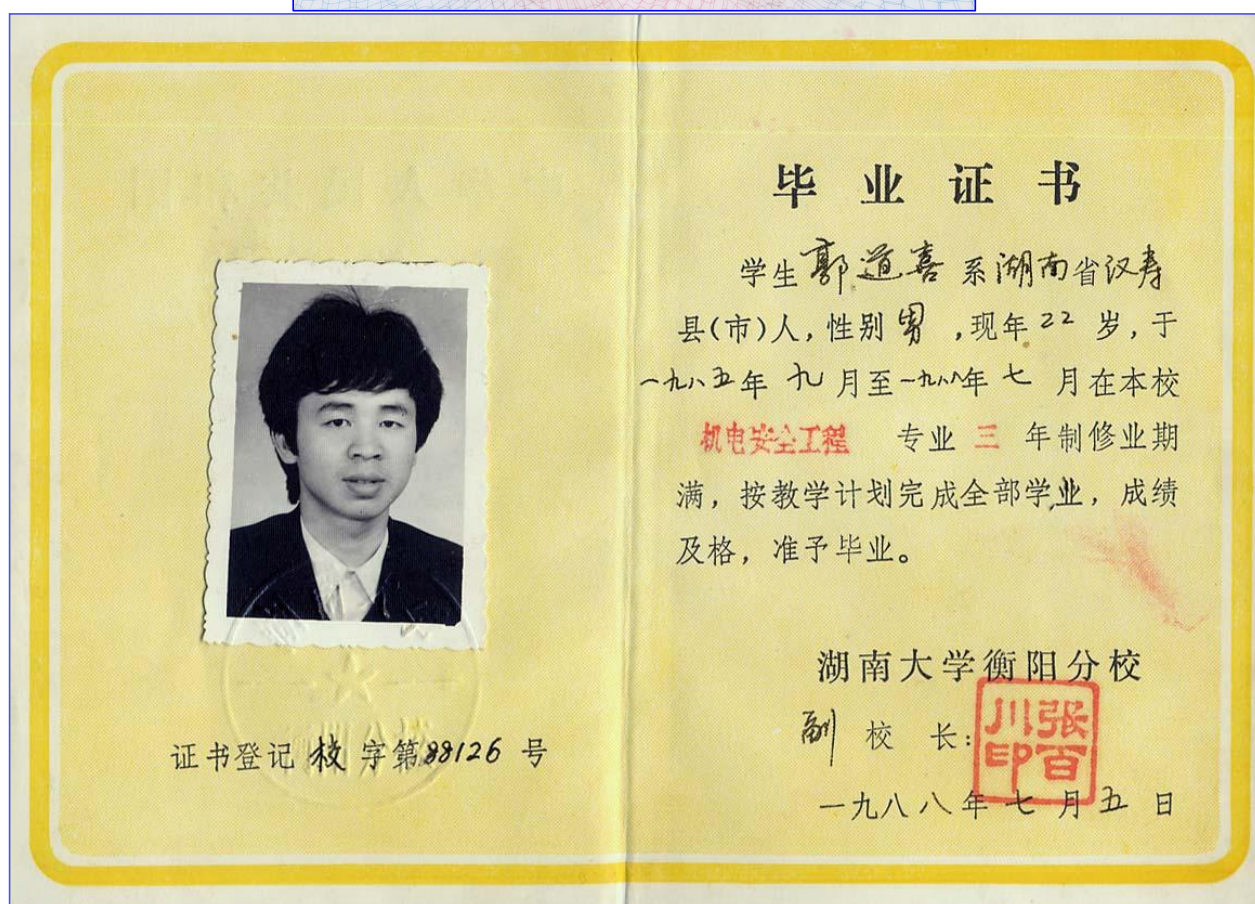 证书登记 校 字第88126 号
毕业证书
学生郭道喜系湖南省汉寿
县(市)人,性别 男 ,现年22 岁,于
一九八五年 九 月至一九八八年 七 月在本校
机电安全工程 专业 三 年制修业期
满,按教学计划完成全部学业,成绩
及格,准予毕业。
湖南大学衡阳分校
副 校 长:
张百川印
一九八八年 七 月 五 日